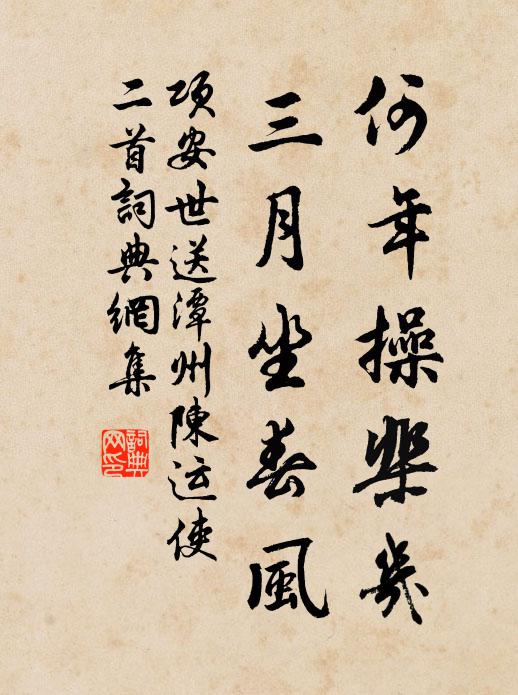 何年操棐幾
三月坐春風
項安世送潭州陳运使
二首詞典網集
詞典网印